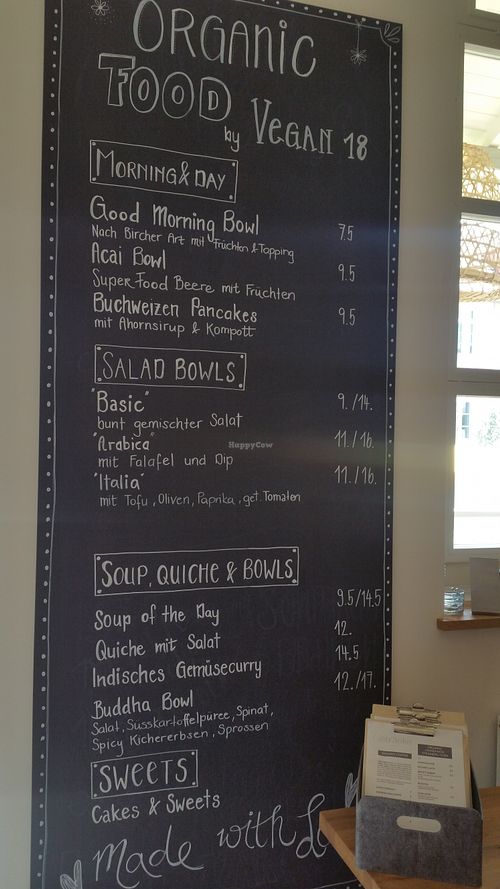 ORGANIC
FOOD
by VEGAN 18
MORNING & DAY
Good Morning Bowl 7.5
Nach Bircher Art mit Früchten & Topping
Acai Bowl 9.5
Super Food Beere mit Früchten
Buchweizen Pancakes 9.5
mit Ahornsirup & Kompott
SALAD BOWLS
"Basic" 9./14.
bunt gemischter Salat
"Arabica" 11./16.
mit Falafel und Dip
"Italia" 11./16.
mit Tofu, Oliven, Paprika, get. Tomaten
HappyCow
SOUP, QUICHE & BOWLS
Soup of the Day 9.5/14.5
Quiche mit Salat 12.
Indisches Gemüsecurry 14.5
Buddha Bowl 12./17.
Salat, Süsskartoffelpüree, Spinat,
Spicy Kichererbsen, Sprossen
SWEETS
Cakes & Sweets
Made with